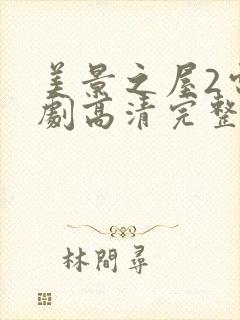 美景之屋2
劇高清完整
林間尋